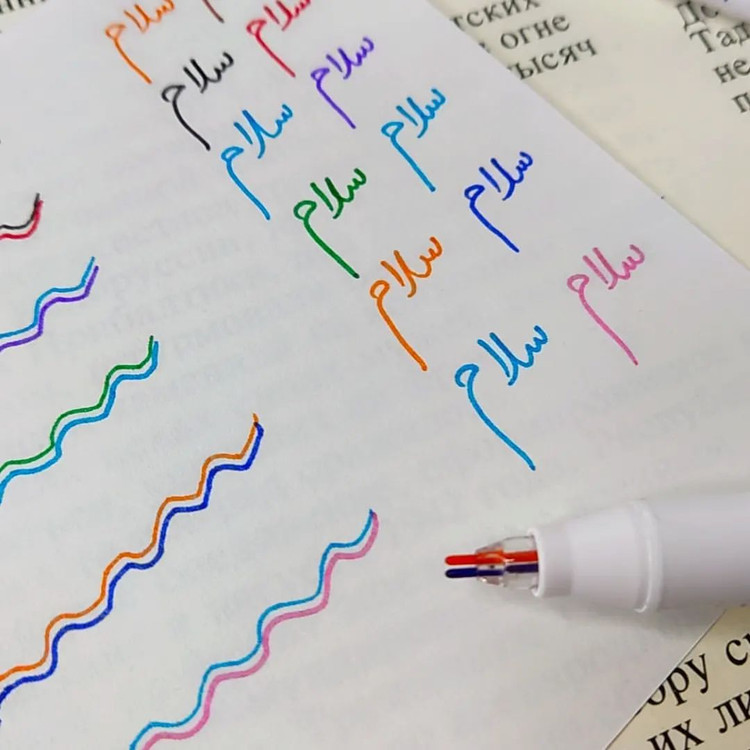 سلام
سلام
سلام
سلام
سلام
سلام
سلام
سلام
سلام
سلام
سلام
тских
огне
ысяч
Тад
не
ору
их ли